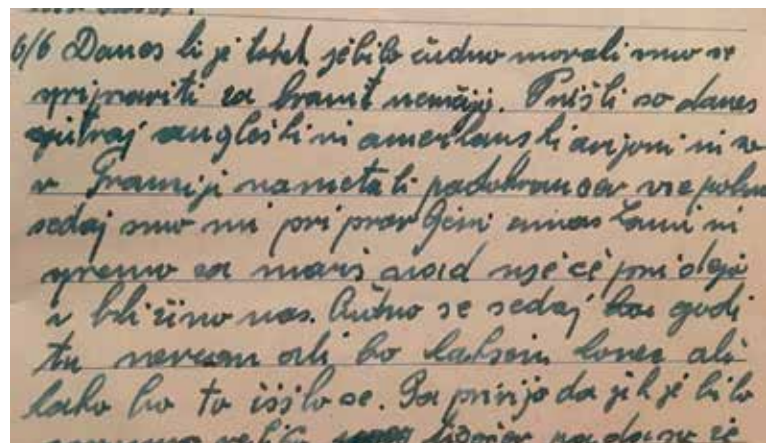 6/6 Danes ki je torek je bilo čudno morali smo se
pripraviti za branit nemčijo. Prišli so danes
zjutraj angleški ni amerkanski avjoni ni so
v Franciji nametali padobrancev vse polno
sedaj smo mi pripravljeni
za marš nad nje če pridejo
v bližino nas. Čudno se sedaj godi
tu nevem ali bo kakšin konec ali
lako bo to išilo se. Pa pravijo da jih je bilo